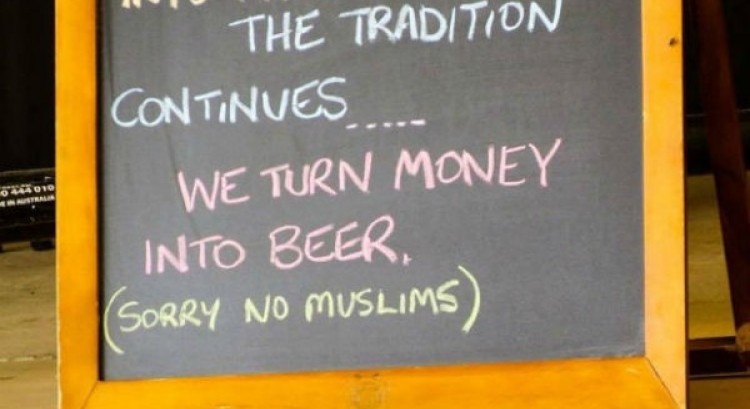 THE TRADITION
CONTINUES.....
WE TURN MONEY
INTO BEER.
(SORRY NO MUSLIMS)
0 444 010
E IN AUSTRALIA